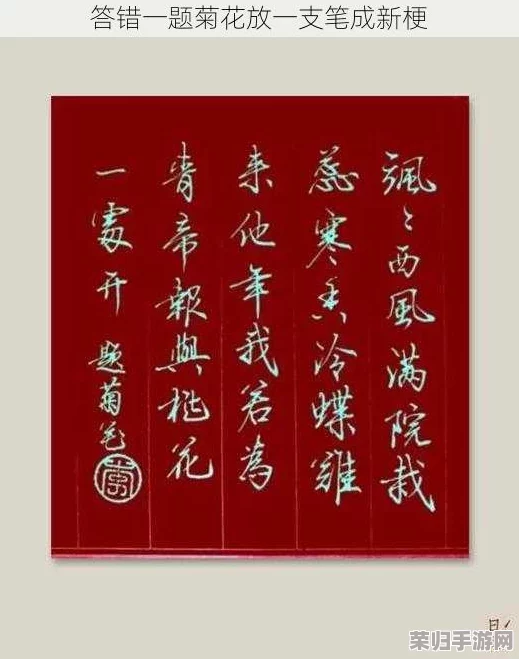 答错一题菊花放一支笔成新梗
颯〻西風满院栽
蕊寒香冷蝶難
来他年我若為
青帝報與桃花
一處开 题菊花
荣归手游网